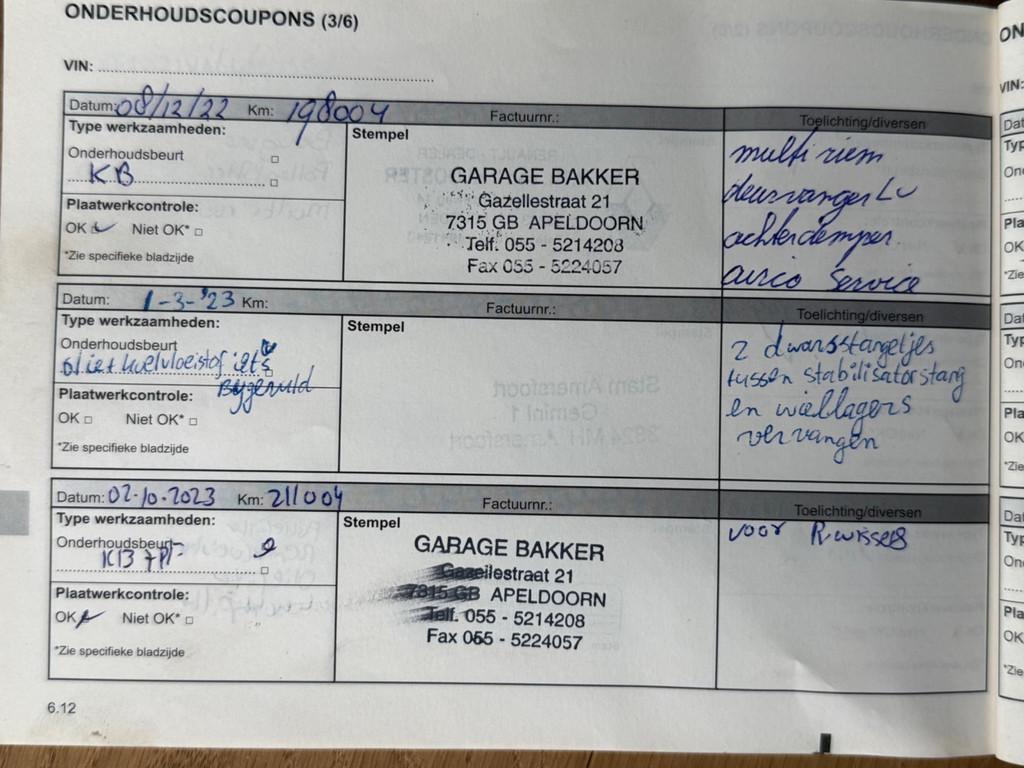 ONDERHOUDSCOUPONS (3/6)
VIN:
Datum: 08/12/22 Km: 198004 Factuurnr.: Toelichting/diversen
Type werkzaamheden:
Onderhoudsbeurt
KB
Plaatwerkcontrole:
OK Niet OK*
*Zie specifieke bladzijde
Stempel
GARAGE BAKKER
Gazellestraat 21
7315 GB APELDOORN
Telf. 055 - 5214208
Fax 055 - 5224057
multi riem
deurvanger LV
achterdemper
airco service
Datum: 1-3-'23 Km: Factuurnr.: Toelichting/diversen
Type werkzaamheden:
Onderhoudsbeurt
koelvloeistof iets
Bijgevuld
Plaatwerkcontrole:
OK Niet OK*
*Zie specifieke bladzijde
Stempel
2 dwarsstangetjes
tussen stabilisatorstang
en wiellagers
vervangen
Datum: 02-10-2023 Km: 211004 Factuurnr.: Toelichting/diversen
Type werkzaamheden:
Onderhoudsbeurt
KB +
Plaatwerkcontrole:
OK Niet OK*
*Zie specifieke bladzijde
Stempel
GARAGE BAKKER
Gazellestraat 21
7315 GB APELDOORN
Telf. 055 - 5214208
Fax 055 - 5224057
voor R.wissers
6.12
ON
VIN: